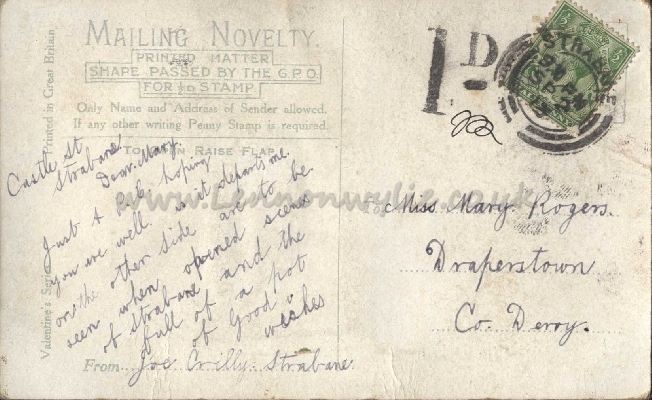 MAILING NOVELTY.
PRINTED MATTER
SHAPE PASSED BY THE G.P.O.
FOR ½D STAMP.
Only Name and Address of Sender allowed.
If any other writing Penny Stamp is required.
TO OPEN RAISE FLAP
Printed in Great Britain
Valentine's Series
1D
STRABANE
www.Lennonwylie.co.uk
Castle St
Strabane
Dear Mary
Just a hoping
you are well. as it departs me.
on the other side are to be
seen when opened scenes
of Strabane and the
full of a pot
of Good
wishes
From Joe Crilly Strabane
To Miss Mary Rogers.
Draperstown
Co. Derry.